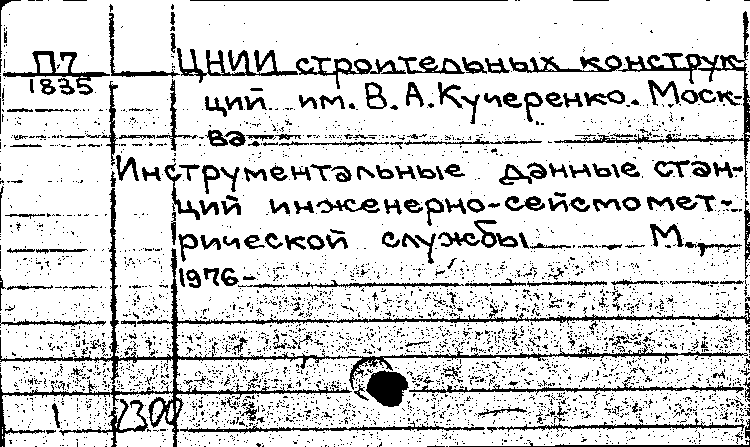 П7
1835
ЦНИИ строительных конструк-
ций им. В. А. Кучеренко. Моск-
ва.
Инструментальные данные стан-
ций инженерно-сейсмомет-
рической службы М.,
1976-
1 2300